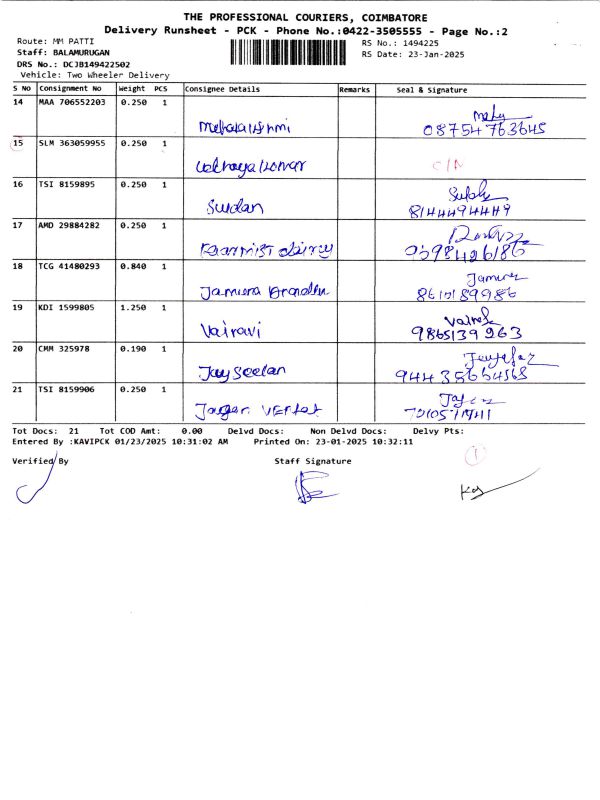 THE PROFESSIONAL COURIERS, COIMBATORE
Delivery Runsheet - PCK - Phone No.:0422-3505555 - Page No.:2
Route: MM PATTI
RS No.: 1494225
Staff: BALAMURUGAN
RS Date: 23-Jan-2025
DRS No.: DCJB149422502
Vehicle: Two Wheeler Delivery
S No Consignment No Weight PCS Consignee Details Remarks Seal & Signature
14 MAA 706552203 0.250 1
08754763645
15 SLM 363059955 0.250 1
C/N
16 TSI 8159895 0.250 1
Surdan
8144494449
17 AMD 29884282 0.250 1
18 TCG 41480293 0.840 1
8610189986
19 KDI 1599805 1.250 1
Vairavi
9865139263
20 CMM 325978 0.190 1
Jayseelan
21 TSI 8159906 0.250 1
Tot Docs: 21 Tot COD Amt: 0.00 Delvd Docs: Non Delvd Docs: Delvy Pts:
Entered By :KAVIPCK 01/23/2025 10:31:02 AM Printed On: 23-01-2025 10:32:11
Verified By Staff Signature
1